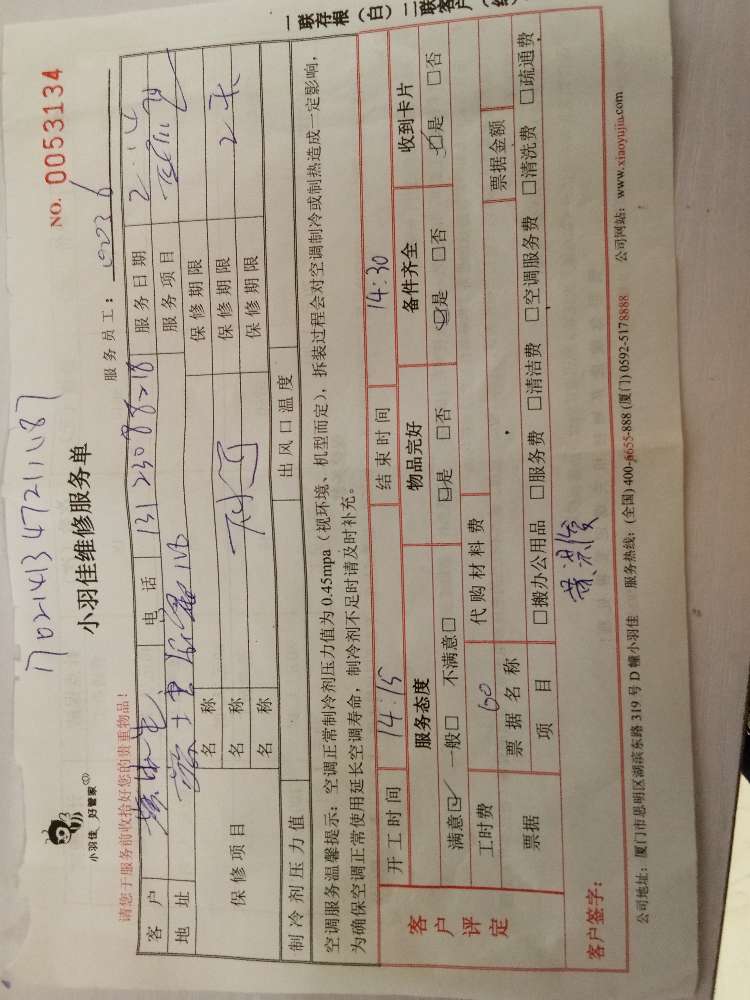 17021413472111187
小羽佳 好管家
小羽佳维修服务单
NO. 0053134
请您于服务前收拾好您的贵重物品!
服务员工:
客户 电话 13123088218 服务日期
地址 服务项目
保修项目 名称 保修期限
名称 保修期限 2天
名称 保修期限
制冷剂压力值 出风口温度
空调服务温馨提示:空调正常制冷剂压力值为0.45mpa(视环境、机型而定),拆装过程会对空调制冷或制热造成一定影响,
为确保空调正常使用延长空调寿命,制冷剂不足时请及时补充。
客户评定
开工时间 14:15 结束时间 14:30
服务态度 物品完好 备件齐全 收到卡片
满意☑ 一般□ 不满意□ ☑是 □否 ☑是 □否 ☑是 □否
工时费 60 代购材料费
票据 票据名称 票据金额
项目 □搬办公用品 □服务费 □清洁费 □空调服务费 □清洗费 □疏通费
客户签字:
公司地址:厦门市思明区湖滨东路319号D幢小羽佳 服务热线:(全国)400-6655-888 (厦门)0592-5178888 公司网站:www.xiaoyujia.com
一联存根(白)二联客户(红)